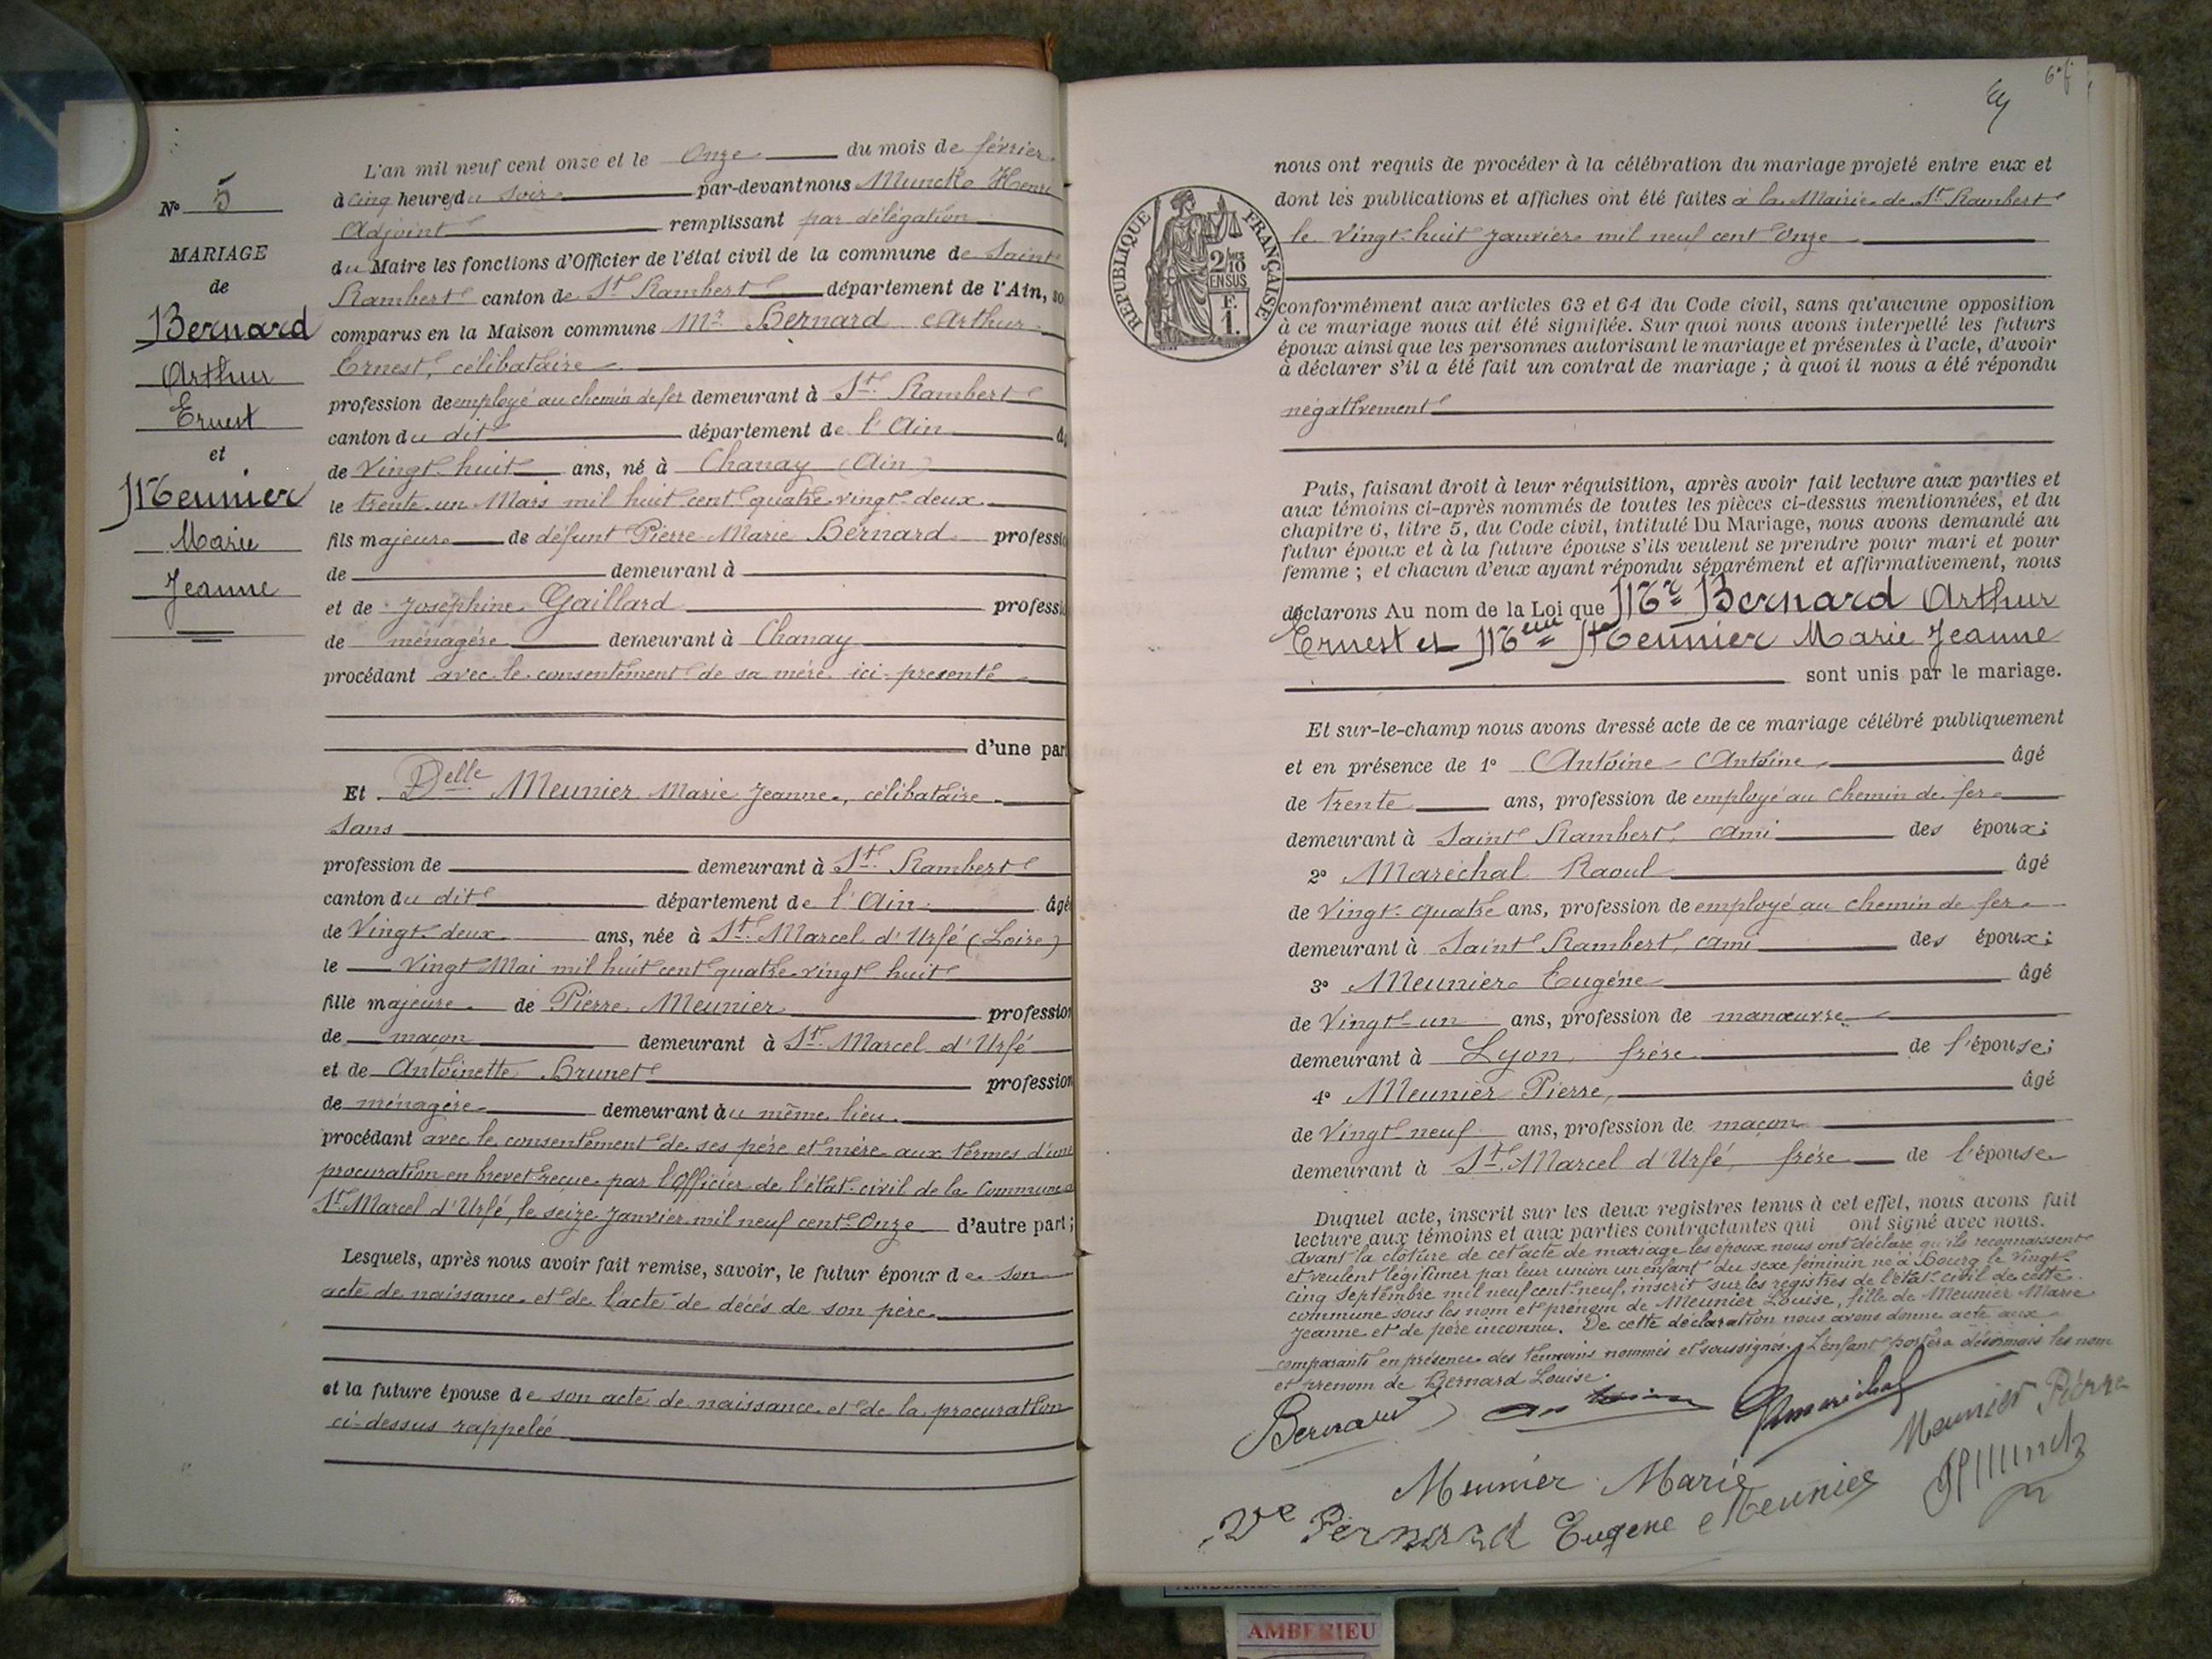 L'an mil neuf cent onze et le Onze du mois de février
à cinq heures du soir par-devant nous Munck Henri
Adjoint remplissant par délégation
du Maire les fonctions d'Officier de l'état civil de la commune de Saint
Rambert canton de St Rambert département de l'Ain, so
comparus en la Maison commune Mr Bernard Arthur
Ernest, célibataire
profession de employé au chemin de fer demeurant à St Rambert
canton du dit département de l'Ain
de Vingt-huit ans, né à Chanay (Ain)
le trente un Mars mil huit cent quatre vingt deux
fils majeur de défunt Pierre Marie Bernard professio
de demeurant à
et de Joséphine Gaillard professi
de ménagère demeurant à Chanay
procédant avec le consentement de sa mère ici présente
d'une par
Et Delle Meunier Marie Jeanne, célibataire
Sans
profession de demeurant à St Rambert
canton du dit département de l'Ain âgé
de Vingt deux ans, née à St Marcel d'Urfé (Loire)
le Vingt Mai mil huit cent quatre vingt huit
fille majeure de Pierre Meunier profession
de maçon demeurant à St Marcel d'Urfé
et de Antoinette Brunet profession
de ménagère demeurant au même lieu
procédant avec le consentement de ses père et mère aux termes d'une
procuration en brevet reçue par l'Officier de l'état-civil de la Commune
St Marcel d'Urfé, le seize Janvier mil neuf cent Onze d'autre part;
Lesquels, après nous avoir fait remise, savoir, le futur époux de son
acte de naissance et de l'acte de décès de son père
et la future épouse de son acte de naissance et de la procuration
ci-dessus rappelée
No 5
MARIAGE
de
Bernard
Arthur
Ernest
et
Meunier
Marie
Jeanne
nous ont requis de procéder à la célébration du mariage projeté entre eux et
dont les publications et affiches ont été faites à la Mairie de St Rambert
le Vingt-huit Janvier mil neuf cent Onze
RÉPUBLIQUE FRANÇAISE
2/10
EN SUS
F.
1.
conformément aux articles 63 et 64 du Code civil, sans qu'aucune opposition
à ce mariage nous ait été signifiée. Sur quoi nous avons interpellé les futurs
époux ainsi que les personnes autorisant le mariage et présentes à l'acte, d'avoir
à déclarer s'il a été fait un contrat de mariage ; à quoi il nous a été répondu
négativement
Puis, faisant droit à leur réquisition, après avoir fait lecture aux parties et
aux témoins ci-après nommés de toutes les pièces ci-dessus mentionnées, et du
chapitre 6, titre 5, du Code civil, intitulé Du Mariage, nous avons demandé au
futur époux et à la future épouse s'ils veulent se prendre pour mari et pour
femme ; et chacun d'eux ayant répondu séparément et affirmativement, nous
déclarons Au nom de la Loi que Mr Bernard Arthur
Ernest et Melle Meunier Marie Jeanne
sont unis par le mariage.
Et sur-le-champ nous avons dressé acte de ce mariage célébré publiquement
et en présence de 1o Antoine Antoine, âgé
de trente ans, profession de employé au chemin de fer
demeurant à Saint Rambert, ami des époux;
2o Maréchal Raoul âgé
de Vingt-quatre ans, profession de employé au chemin de fer
demeurant à Saint Rambert, ami des époux;
3o Meunier Eugène âgé
de Vingt-un ans, profession de manœuvre
demeurant à Lyon, frère de l'épouse;
4o Meunier Pierre, âgé
de Vingt-neuf ans, profession de maçon
demeurant à St Marcel d'Urfé, frère de l'épouse
Duquel acte, inscrit sur les deux registres tenus à cet effet, nous avons fait
lecture aux témoins et aux parties contractantes qui ont signé avec nous.
Avant la clôture de cet acte de mariage les époux nous ont déclaré qu'ils reconnaissent
et veulent légitimer par leur union un enfant du sexe féminin né à Bourg le Vingt-
cinq Septembre mil neuf cent-neuf, inscrit sur les registres de l'état-civil de cette
commune sous les nom et prénom de Meunier Louise, fille de Meunier Marie
Jeanne et de père inconnu. De cette déclaration nous avons donné acte aux
comparants en présence des témoins nommés et soussignés. L'enfant portera désormais les nom
et prénom de Bernard Louise.
Bernard Antoine Rmaréchal
Meunier Pierre
Meunier Marie
HMunck
Ve Bernard Eugene Meunier
AMBERIEU